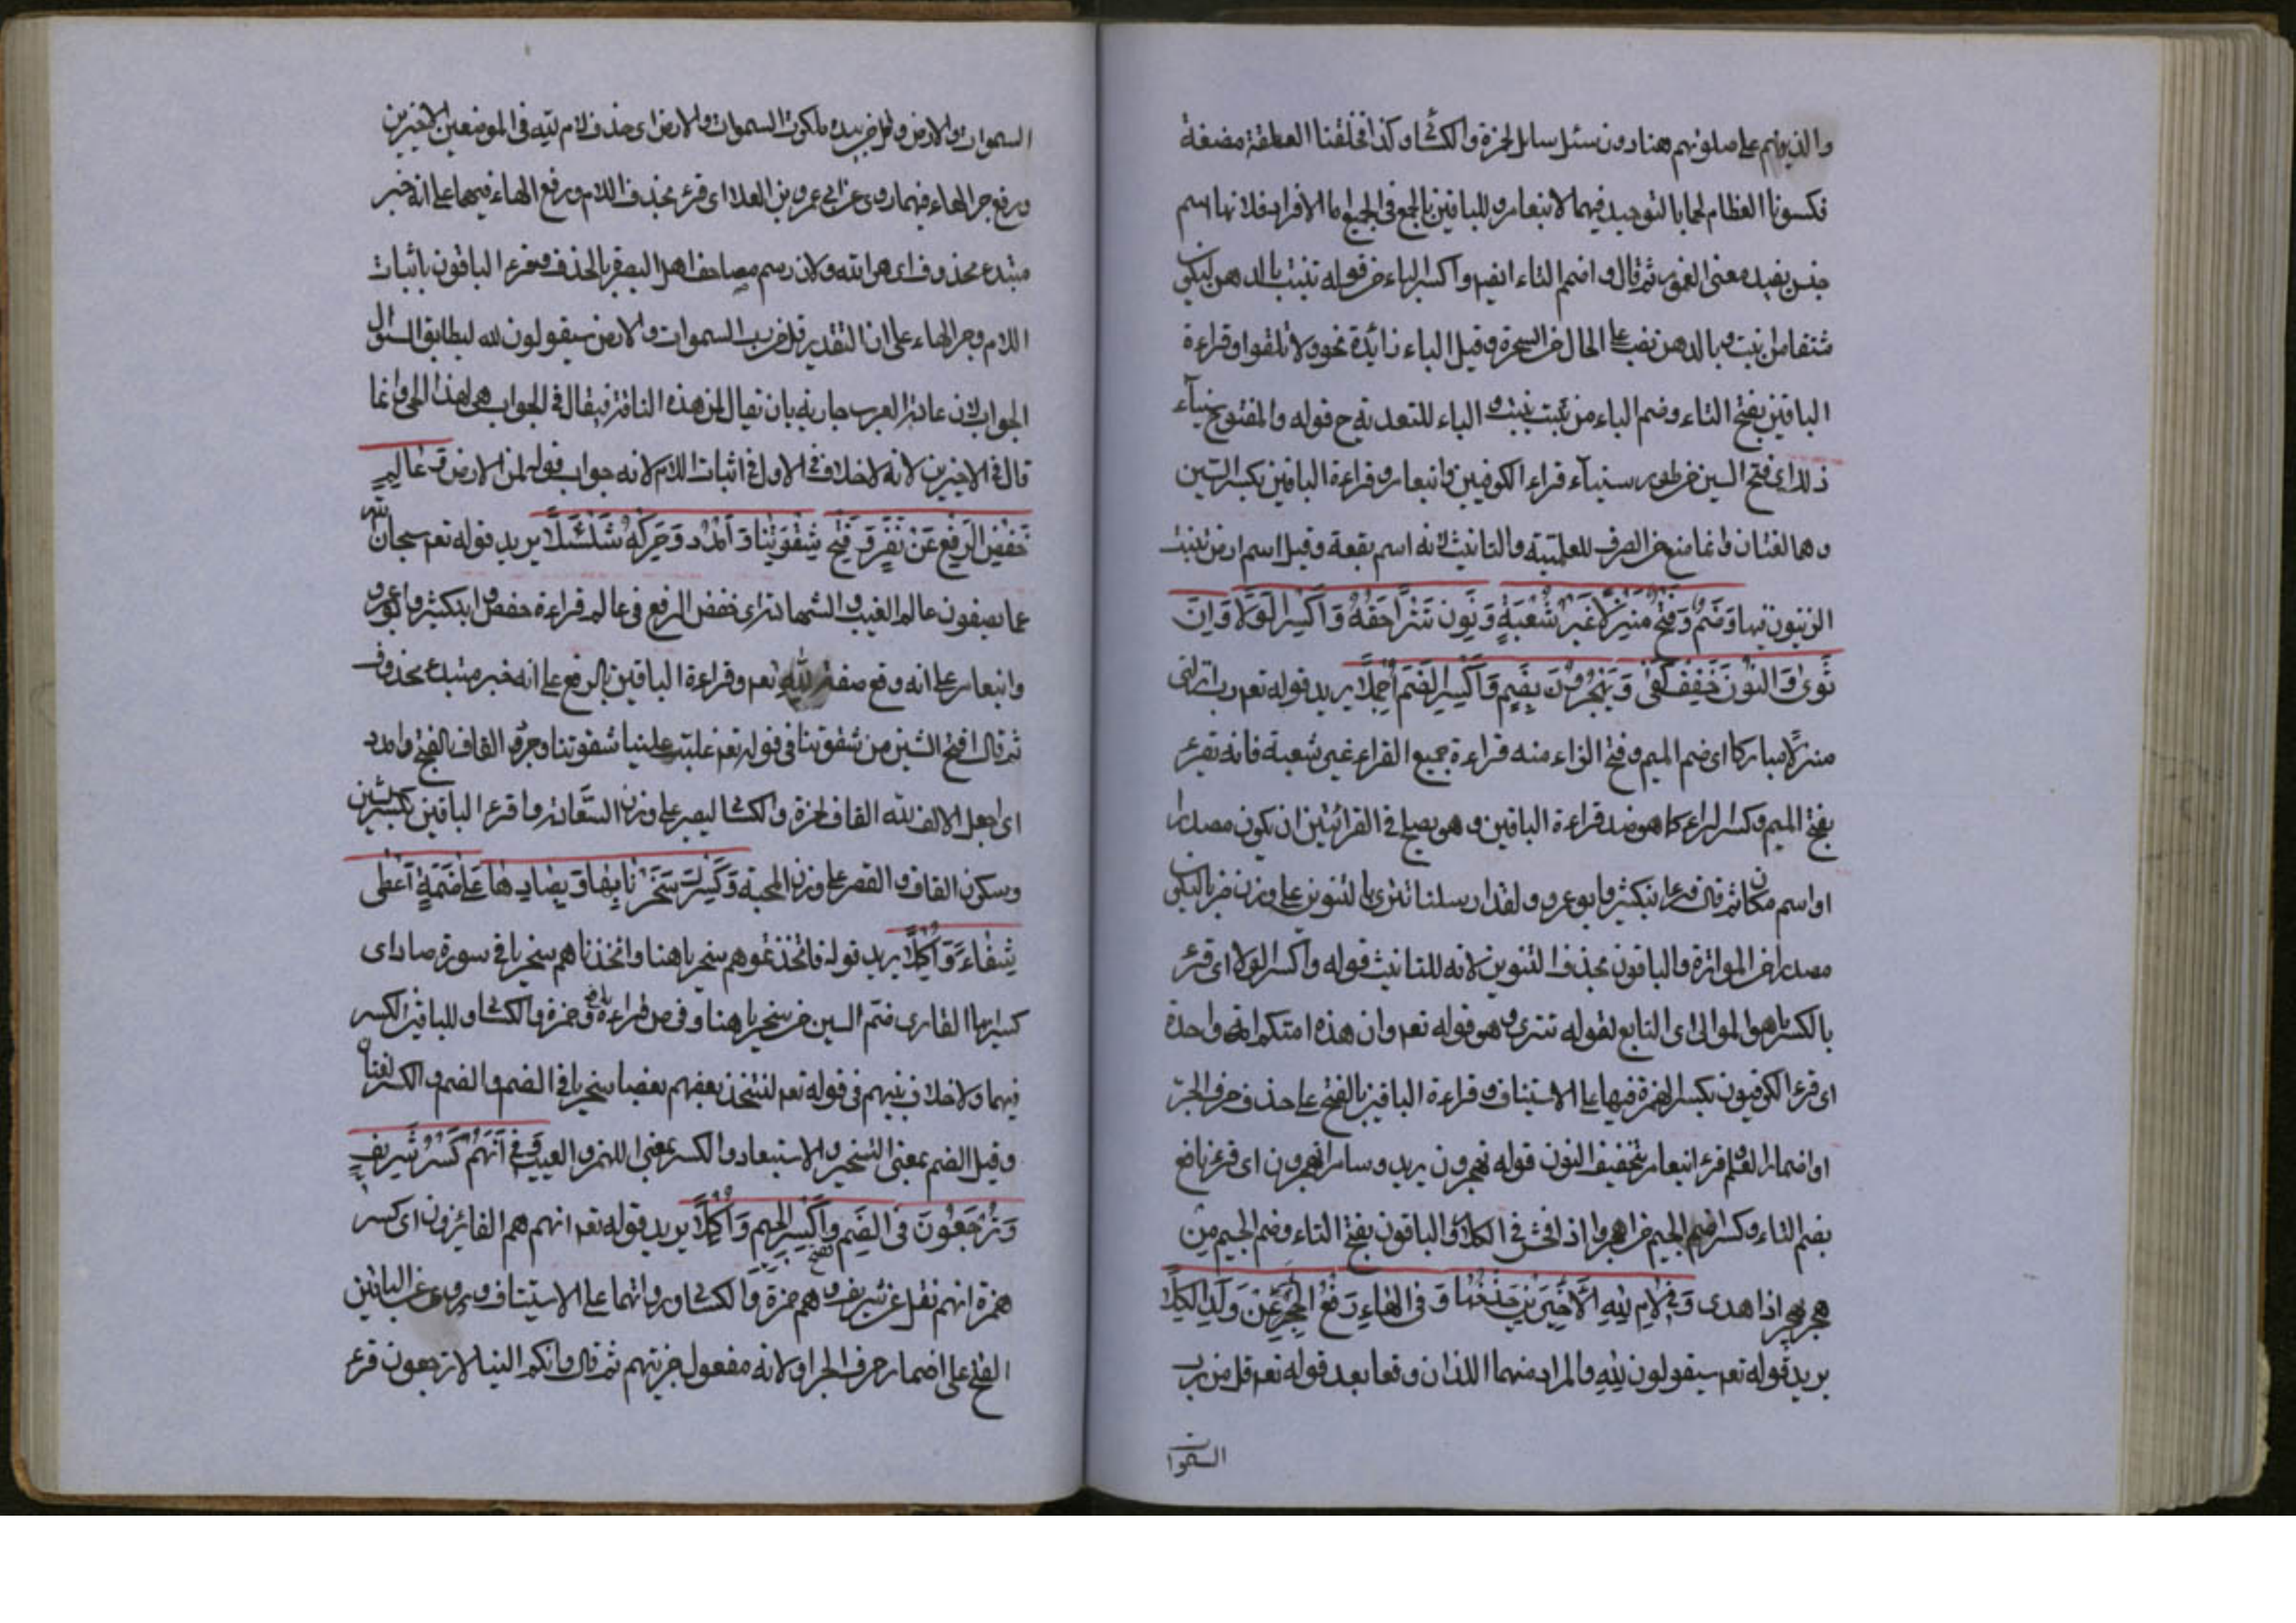 والذين هم على صلوتهم هنا دون سئل سائل لحمزة والكسائى وكذا فخلقنا العلقة مضغة
فكسونا العظام لحما بالتوحيد فيهما لابنعامر وللباقين بالجمع فى الجميع اما الافراد فلانها اسم
جنس يفيد معنى العموم ثم قال واضمم التاء ايضم واكسر الباء من قوله تنبت بالدهن ليكون
مشتقا من انبت وبالدهن نصب على الحال من الشجرة وقيل الباء زائدة نحو ولا تلقوا وقراءة
الباقين بفتح التاء وضم الباء من نبت ينبت والباء للتعدية ح قوله والمفتوح سيناء
ذللا اى فتح السين من طور سيناء قراء الكوفيين وابنعامر وقراءة الباقين بكسر السين
وهما لغتان وانما منع من الصرف للعلمية والتانيث لانه اسم بقعة وقيل اسم ارض تنبت
الزيتون فيها وَضَمٌّ وَفَتْحٌ مَنْزِلًا غَيْرُ شُعْبَةٍ وَنَوَّنَ تَتْرًا حَقُّهُ وَاكْسِرِ الْوَلَا وَاِنَّ
ثَوٰى وَالنُّونَ خَفِّفْ كَفٰى وَتَهْجُرُونَ بِضَمٍّ وَاكْسِرِ الضَّمَّ اَجْمَلَا يريد قوله تعم رب انزلنى
منزلا مباركا اى ضم الميم وفتح الزاء منه قراءة جميع القراء غير شعبة فانه تقرء
بفتح الميم وكسر الزاء كما هو ضد قراءة الباقين وهو يصلح فى القرائتين ان يكون مصدرا
او اسم مكان ثم قال قرء ابنكثير وابوعمرو ولقد ارسلنا تترى بالتنوين على وزن ضربا ليكون
مصدرا من المواترة والباقون بحذف التنوين لانه للتانيث قوله واكسر الولا اى قرئ
بالكسر ما هو الموالى اى التابع لقوله تترى وهو قوله تعم وان هذه امتكم امة واحدة
اى قرء الكوفيون بكسر الهمزة فيها على الاستيناف وقراءة الباقين بالفتح على حذف حرف الجر
او اضمار اعلم قرء ابنعامر بتخفيف النون قوله تهجرون يريد وسامرا تهجرون اى قرء نافع
بضم التاء وكسر ضم الجيم من اهجر اذا فحش فى الكلام والباقون بفتح التاء وضم الجيم من
هجر يهجر اذا هدى وَفِى لَامِ لِلّٰهِ الْاَخِيرَيْنِ حَذْفُهَا وَفِى الْهَاءِ رَفْعُ الْجَرِّ عَنْ وَلَدِ الْعَلَا
يريد قوله تعم سيقولون لله والمراد منهما اللذان وقعا بعد قوله تعم قل من رب
السموات
السموات والارض وقل من بيده ملكوت السموات والارض اى حذف لام لله فى الموضعين الاخيرين
ورفع جر الهاء فيهما روى عن ابى عمرو بن العلا اى قرء بحذف اللام ورفع الهاء فيهما على انه خبر
مبتدء محذوف اى هو الله ولان رسم مصاحف اهل البصرة بالحذف وقرء الباقون باثبات
اللام وجر الهاء على ان التقدير قل من رب السموات والارض سيقولون لله ليطابق السؤال
الجواب لان عادة العرب جارية بان تقال لمن هذه الناقة فيقال فى الجواب هى لهذا الحى وانما
قال فى الاخيرين لانه لا خلاف فى الاول فى اثبات اللام لانه جواب قوله لمن الارض وَعَالِمِ
خَفْضُ الرَّفْعِ عَنْ نَفَرٍ وَفَتْحُ شِقْوَتُنَا وَامْدُدْ وَحَرِّكْهُ شُلْشُلَا يريد قوله تعم سبحان الله
عما يصفون عالم الغيب والشهادة اى خفض الرفع فى عالم قراءة حفص وابنكثير وابوعمرو
وابنعامر على انه وقع صفة لله تعم وقراءة الباقين بالرفع على انه خبر مبتدء محذوف
ثم قال افتح الشين من شقوتنا فى قوله تعم غلبت علينا شقوتنا وحرك القاف بالفتح وامدد
اى اجعل الالف لله القاف لحمزة والكسائى ليصير على وزن السعادة واقرء الباقين بكسر الشين
وسكون القاف والقصر على وزن المحبة وَكَسْرُكَ سُخْرِيًّا بِهَا وَبِصَادِهَا عَلٰى ضَمِّهٖ اَعْطٰى
شِفَاءً وَاَكْمَلَا يريد قوله فاتخذتموهم سخريا هنا واتخذناهم سخريا فى سورة صاد اى
كسر ايها القارى ضم السين من سخريا هنا وفى ص قراءة نافع وحمزة والكسائى وللباقين الكسر
فيهما ولا خلاف بينهم فى قوله تعم ليتخذ بعضهم بعضا سخريا فى الضم والضم والكسر لغتان
وقيل الضم بمعنى التسخير والاستبعاد والكسر بمعنى اللهزء والعيب وَفِى اَنَّهُمْ كَسْرٌ شَرِيفٌ
وَتُرْجَعُونَ فِى الضَّمِّ فتح وَاكْسِرِ الْجِيمَ وَاكْمُلَا يريد قوله تعم انهم هم الفائزون اى كسر
همزة انهم نقل عن شريف وهم حمزة والكسائى ورواتهما على الاستيناف وروى عن الباقين
الفتح على اضمار حرف الجر او لانه مفعول جزيتهم ثم قال وانكم الينا لا ترجعون قرء